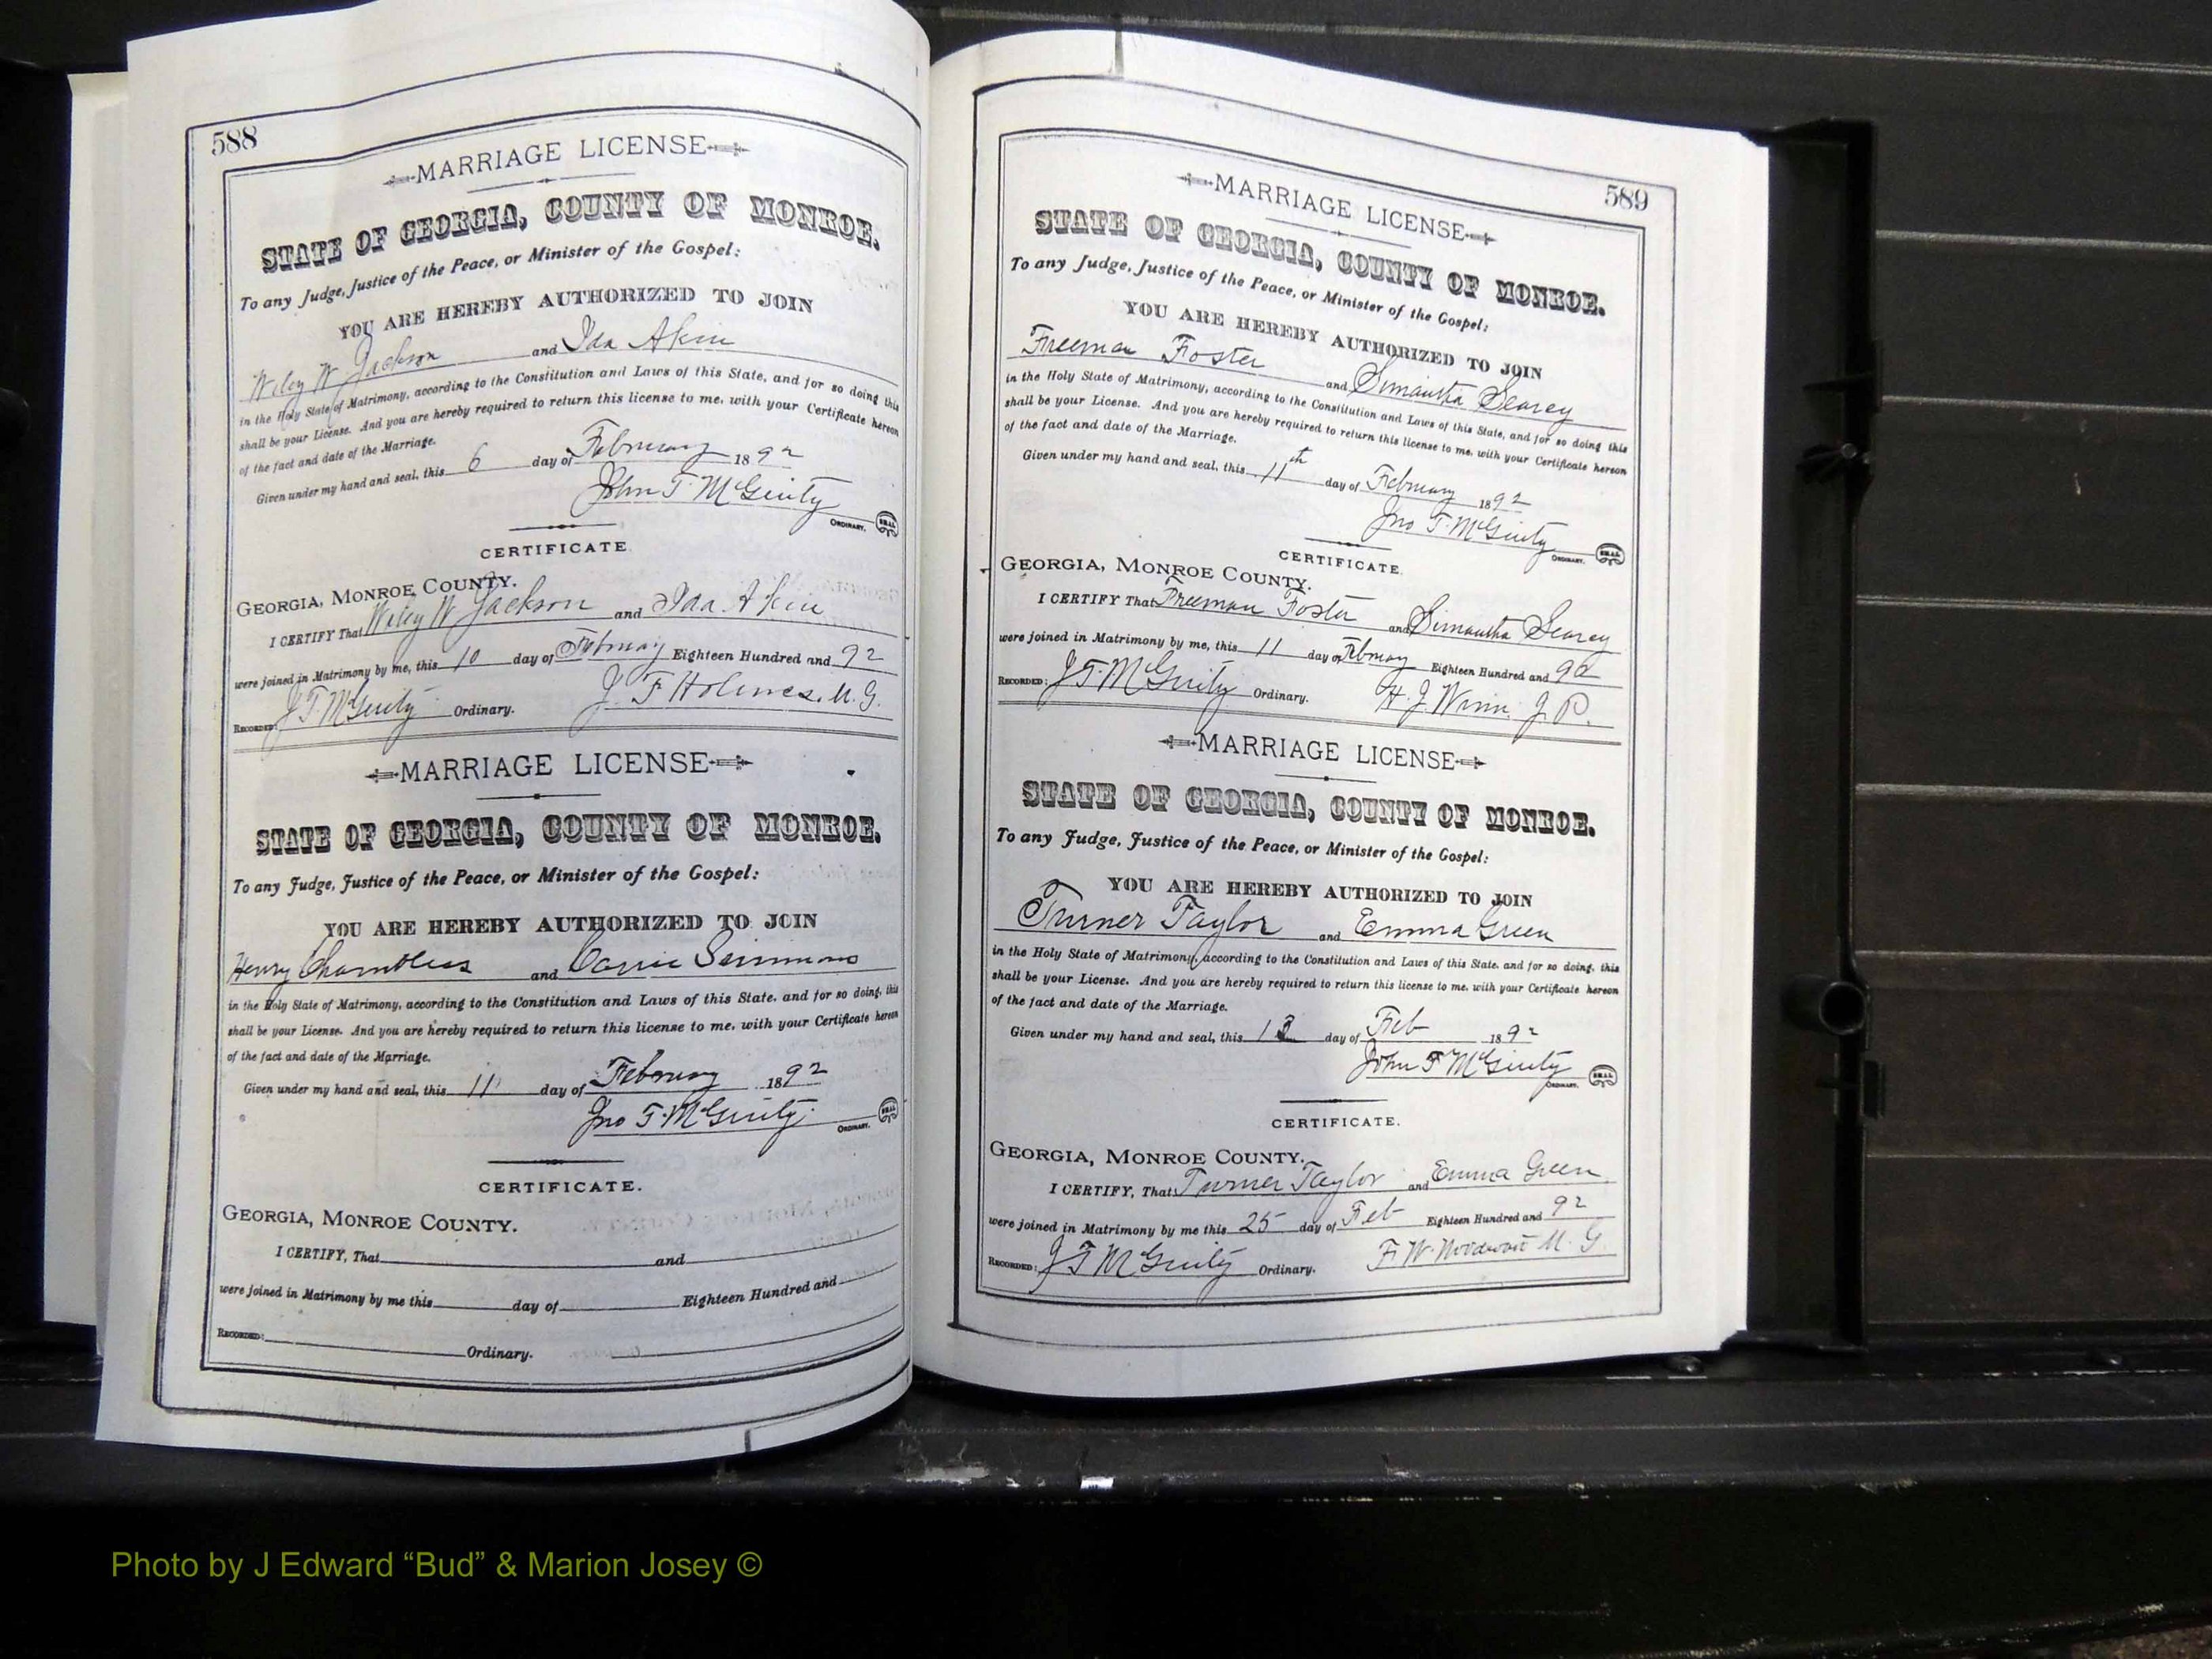 588
MARRIAGE LICENSE
STATE OF GEORGIA, COUNTY OF MONROE.
To any Judge, Justice of the Peace, or Minister of the Gospel:
YOU ARE HEREBY AUTHORIZED TO JOIN
Wiley W Jackson and Ida Akin
in the Holy State of Matrimony, according to the Constitution and Laws of this State, and for so doing this
shall be your License. And you are hereby required to return this license to me, with your Certificate hereon
of the fact and date of the Marriage.
Given under my hand and seal, this 6 day of February 1892
John T. McGinty
ORDINARY. SEAL
CERTIFICATE.
GEORGIA, MONROE COUNTY.
I CERTIFY That Wiley W Jackson and Ida Akin
were joined in Matrimony by me, this 10 day of February Eighteen Hundred and 92
RECORDED: J T. McGinty Ordinary. J. F Holmes. M. G.
MARRIAGE LICENSE
STATE OF GEORGIA, COUNTY OF MONROE.
To any Judge, Justice of the Peace, or Minister of the Gospel:
YOU ARE HEREBY AUTHORIZED TO JOIN
Henry Chambless and Carrie Simmons
in the Holy State of Matrimony, according to the Constitution and Laws of this State, and for so doing, this
shall be your License. And you are hereby required to return this license to me, with your Certificate hereon
of the fact and date of the Marriage.
Given under my hand and seal, this 11 day of February 1892
Jno T. McGinty
ORDINARY. SEAL
CERTIFICATE.
GEORGIA, MONROE COUNTY.
I CERTIFY, That and
were joined in Matrimony by me this day of Eighteen Hundred and
RECORDED: Ordinary.
589
MARRIAGE LICENSE
STATE OF GEORGIA, COUNTY OF MONROE.
To any Judge, Justice of the Peace, or Minister of the Gospel:
YOU ARE HEREBY AUTHORIZED TO JOIN
Freeman Foster and Simantha Searcy
in the Holy State of Matrimony, according to the Constitution and Laws of this State, and for so doing this
shall be your License. And you are hereby required to return this license to me, with your Certificate hereon
of the fact and date of the Marriage.
Given under my hand and seal, this 11th day of February 1892
Jno T. McGinty
ORDINARY. SEAL
CERTIFICATE.
GEORGIA, MONROE COUNTY.
I CERTIFY That Freeman Foster and Simantha Searcy
were joined in Matrimony by me, this 11 day of February Eighteen Hundred and 92
RECORDED: J T. McGinty Ordinary. H. J. Winn. J. P.
MARRIAGE LICENSE
STATE OF GEORGIA, COUNTY OF MONROE.
To any Judge, Justice of the Peace, or Minister of the Gospel:
YOU ARE HEREBY AUTHORIZED TO JOIN
Turner Taylor and Emma Green
in the Holy State of Matrimony, according to the Constitution and Laws of this State, and for so doing, this
shall be your License. And you are hereby required to return this license to me, with your Certificate hereon
of the fact and date of the Marriage.
Given under my hand and seal, this day of Feb 1892
John T McGinty
ORDINARY. SEAL
CERTIFICATE.
GEORGIA, MONROE COUNTY.
I CERTIFY, That Turner Taylor and Emma Green
were joined in Matrimony by me this 25 day of Feb Eighteen Hundred and 92
RECORDED: J T McGinty Ordinary. F. W. M. G
Photo by J Edward “Bud” & Marion Josey ©